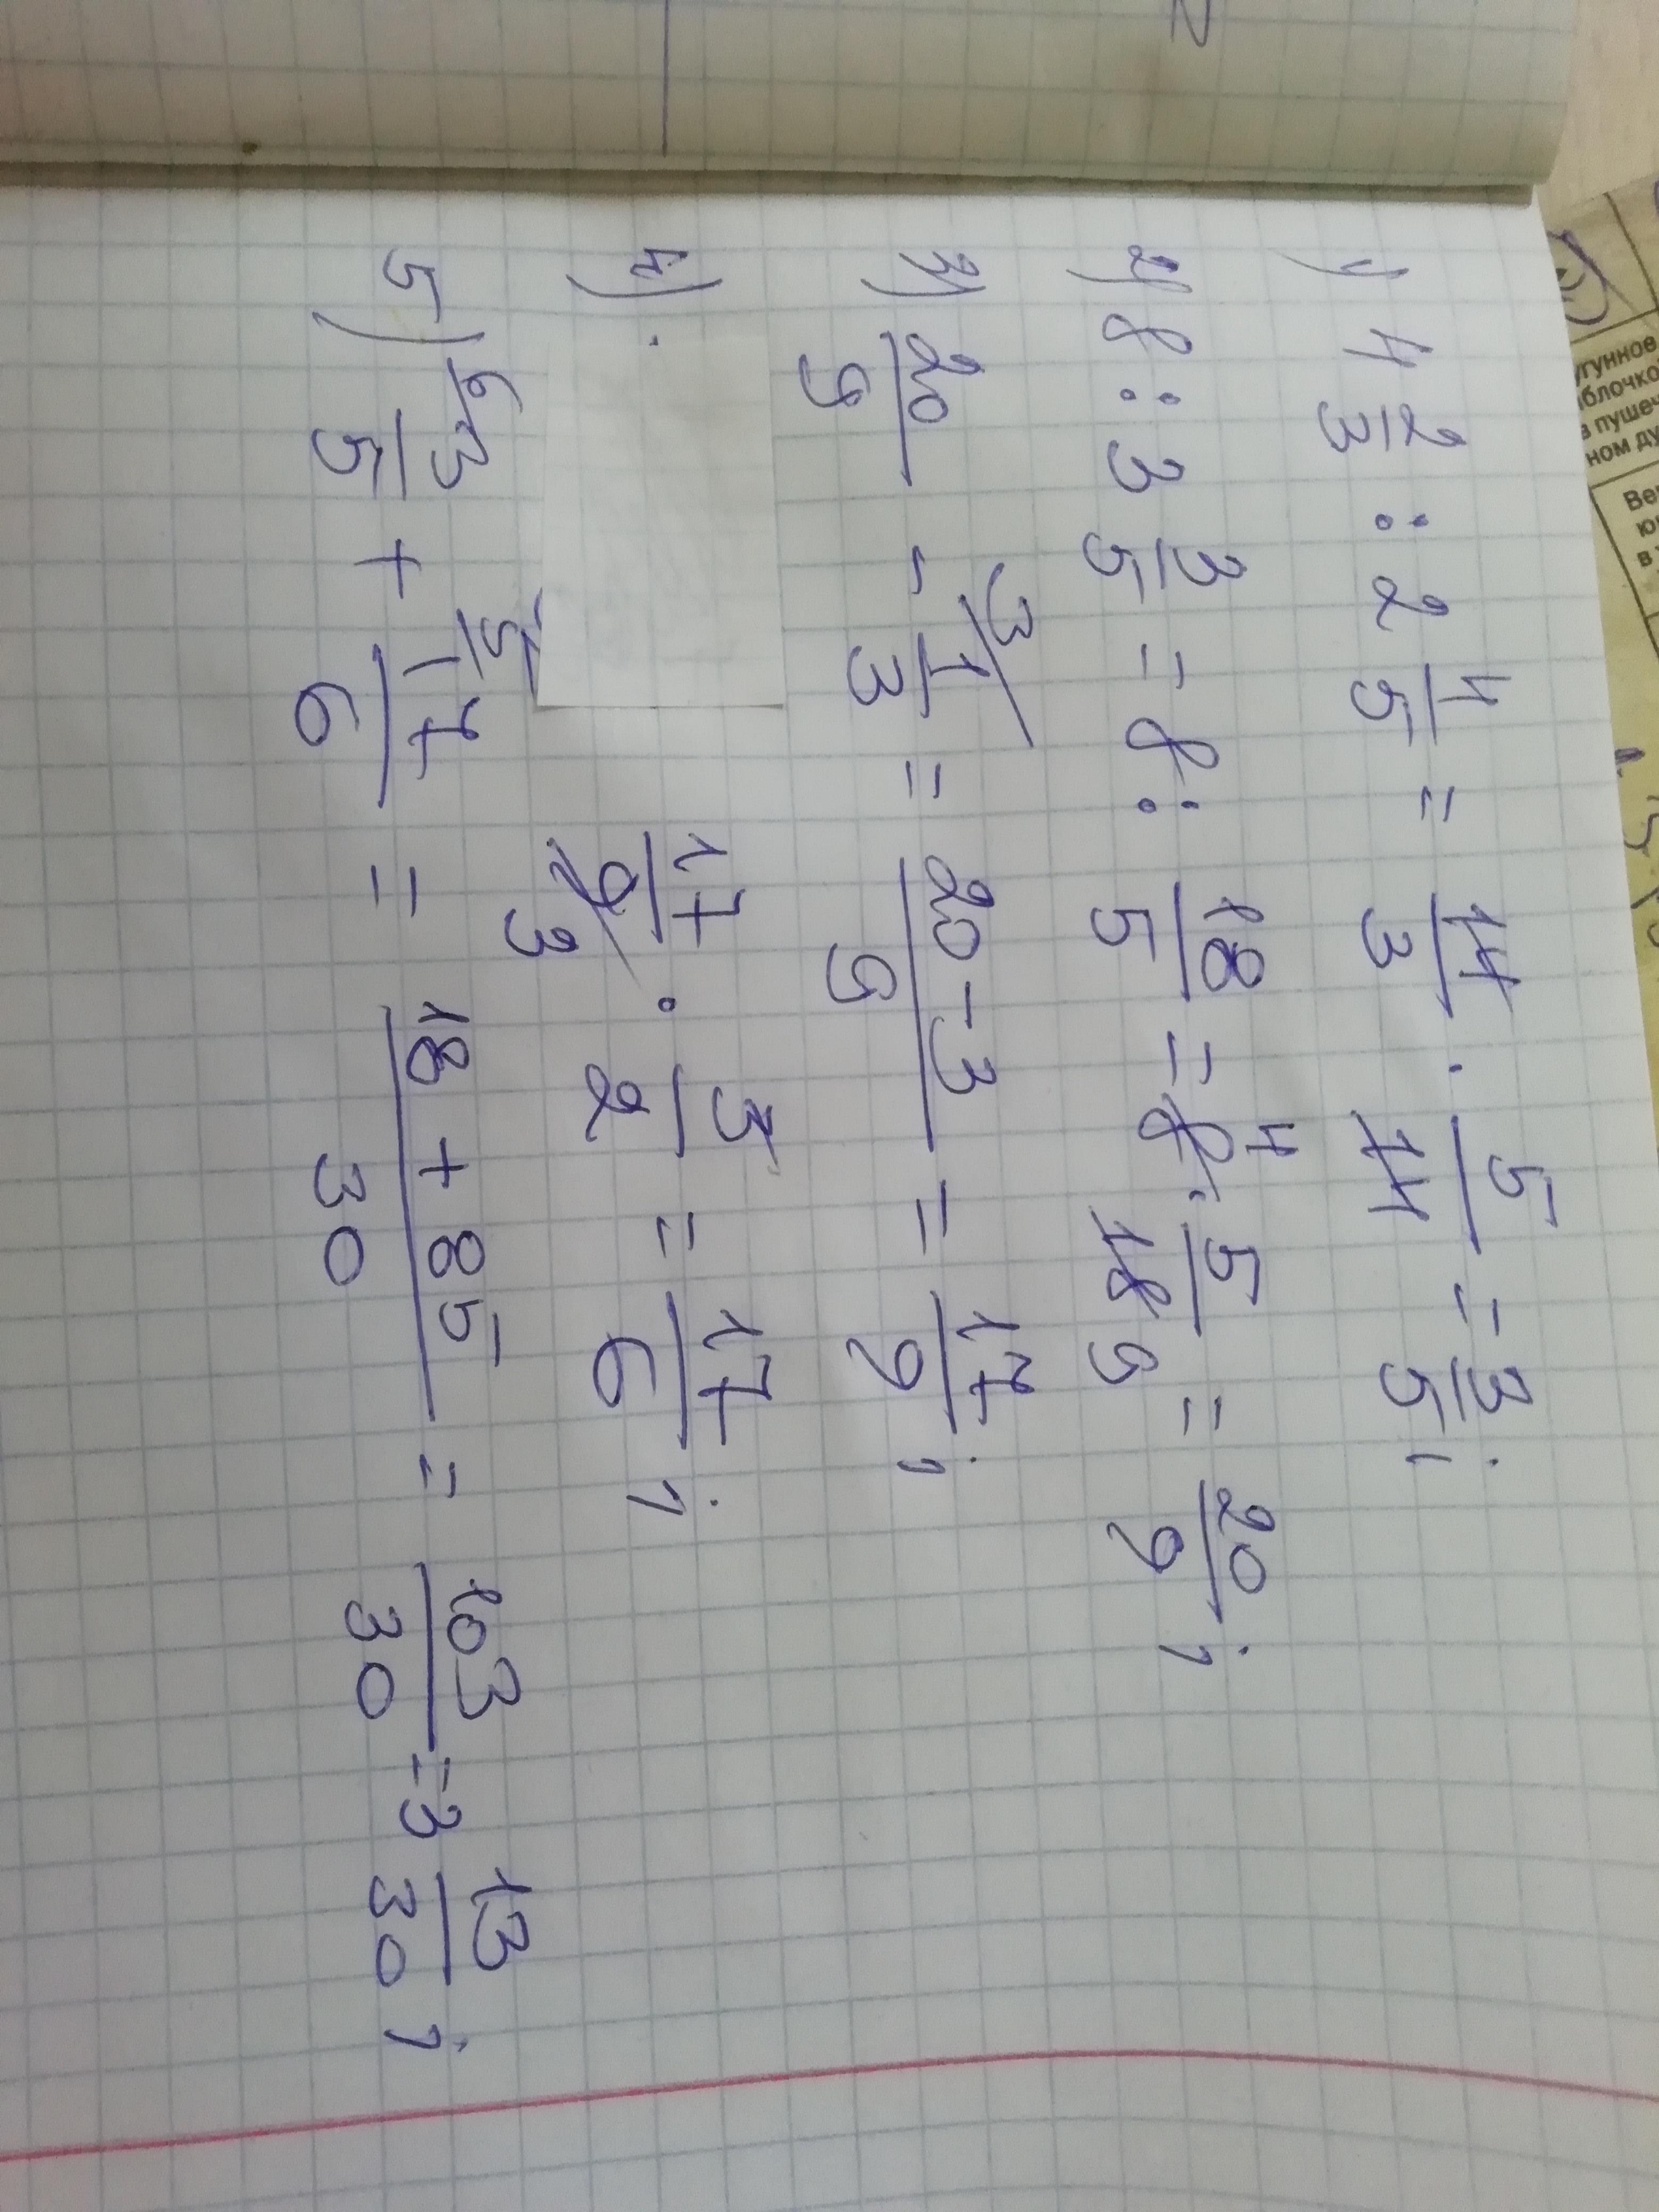 1) 4 2/3 : 2 4/5 = 14/3 · 5/14 = 3/5;
2) 8 : 3 3/5 = 8 : 18/5 = 8 4 · 5/18 9 = 20/9;
3) 20/9 - 3/ 1/3 = 20-3/9 = 17/9;
4) · 17/9 3 · 3/2 = 17/6;
5) 6/ 3/5 + 5/ 17/6 = 18+85/30 = 103/30 = 3 13/30;
угунное
яблочко
в пушеч
ном ду
Ве
ю
в